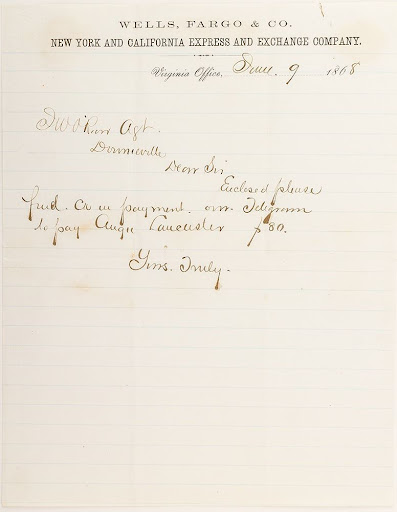 WELLS, FARGO & CO.
NEW YORK AND CALIFORNIA EXPRESS AND EXCHANGE COMPANY.
Virginia Office, June 9 1868
Agt.
Downieville
Dear Sir
Enclosed please
find. Ck in payment. our Telegram
to pay Lancaster $80.
Yours. Truly.